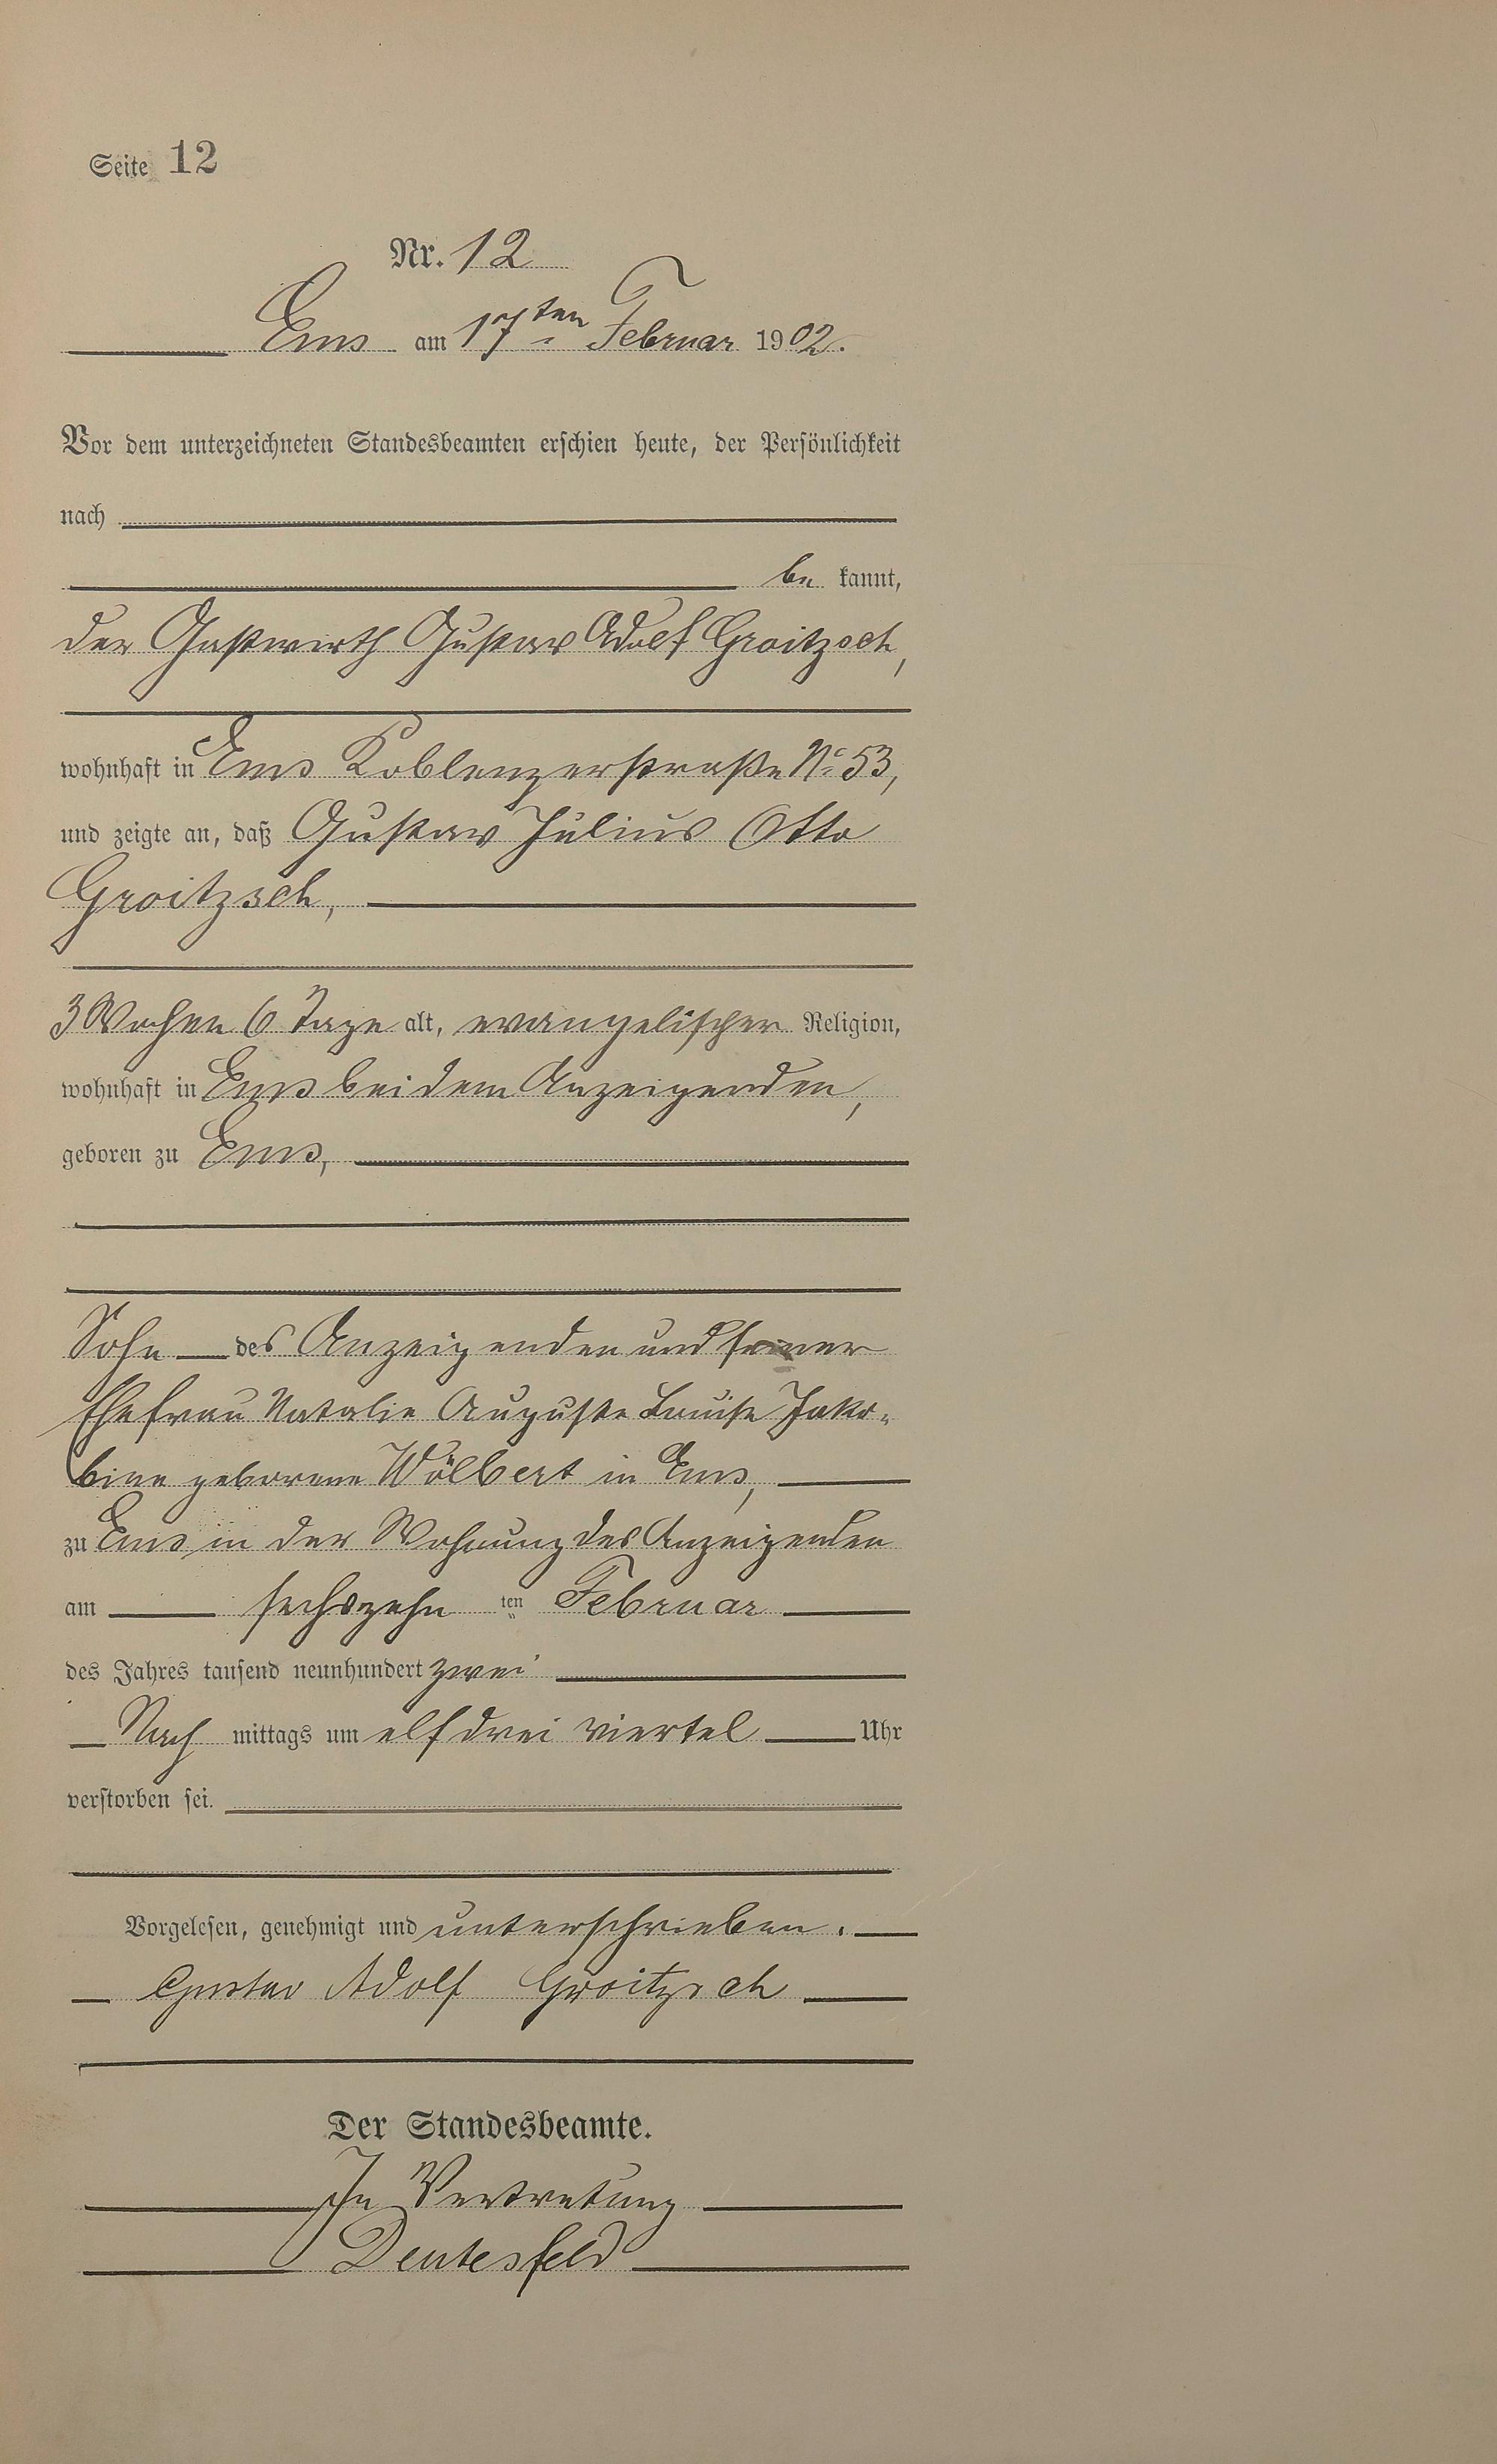 Seite 12
Nr. 12
Ems am 17ten Februar 1902.
Vor dem unterzeichneten Standesbeamten erschien heute, der Persönlichkeit
nach
be kannt,
der Gastwirth Gustav Adolf Groitzsch,
wohnhaft in Ems Koblenzerstraße No 53,
und zeigte an, daß Gustav Julius Otto
Groitzsch,
3 Wochen 6 Tage alt, evangelischer Religion,
wohnhaft in Ems bei dem Anzeigenden,
geboren zu Ems,
Sohn des Anzeigenden und seiner
Ehefrau Natalie Auguste Louise Jako-
bine geborene Wölbert in Ems,
zu Ems in der Wohnung des Anzeigenden
am sechszehn ten Februar
des Jahres tausend neunhundert zwei
Nach mittags um elf drei viertel Uhr
verstorben sei.
Vorgelesen, genehmigt und unterschrieben.
Gustav Adolf Groitzsch
Der Standesbeamte.
In Vertretung
Deutesfeld